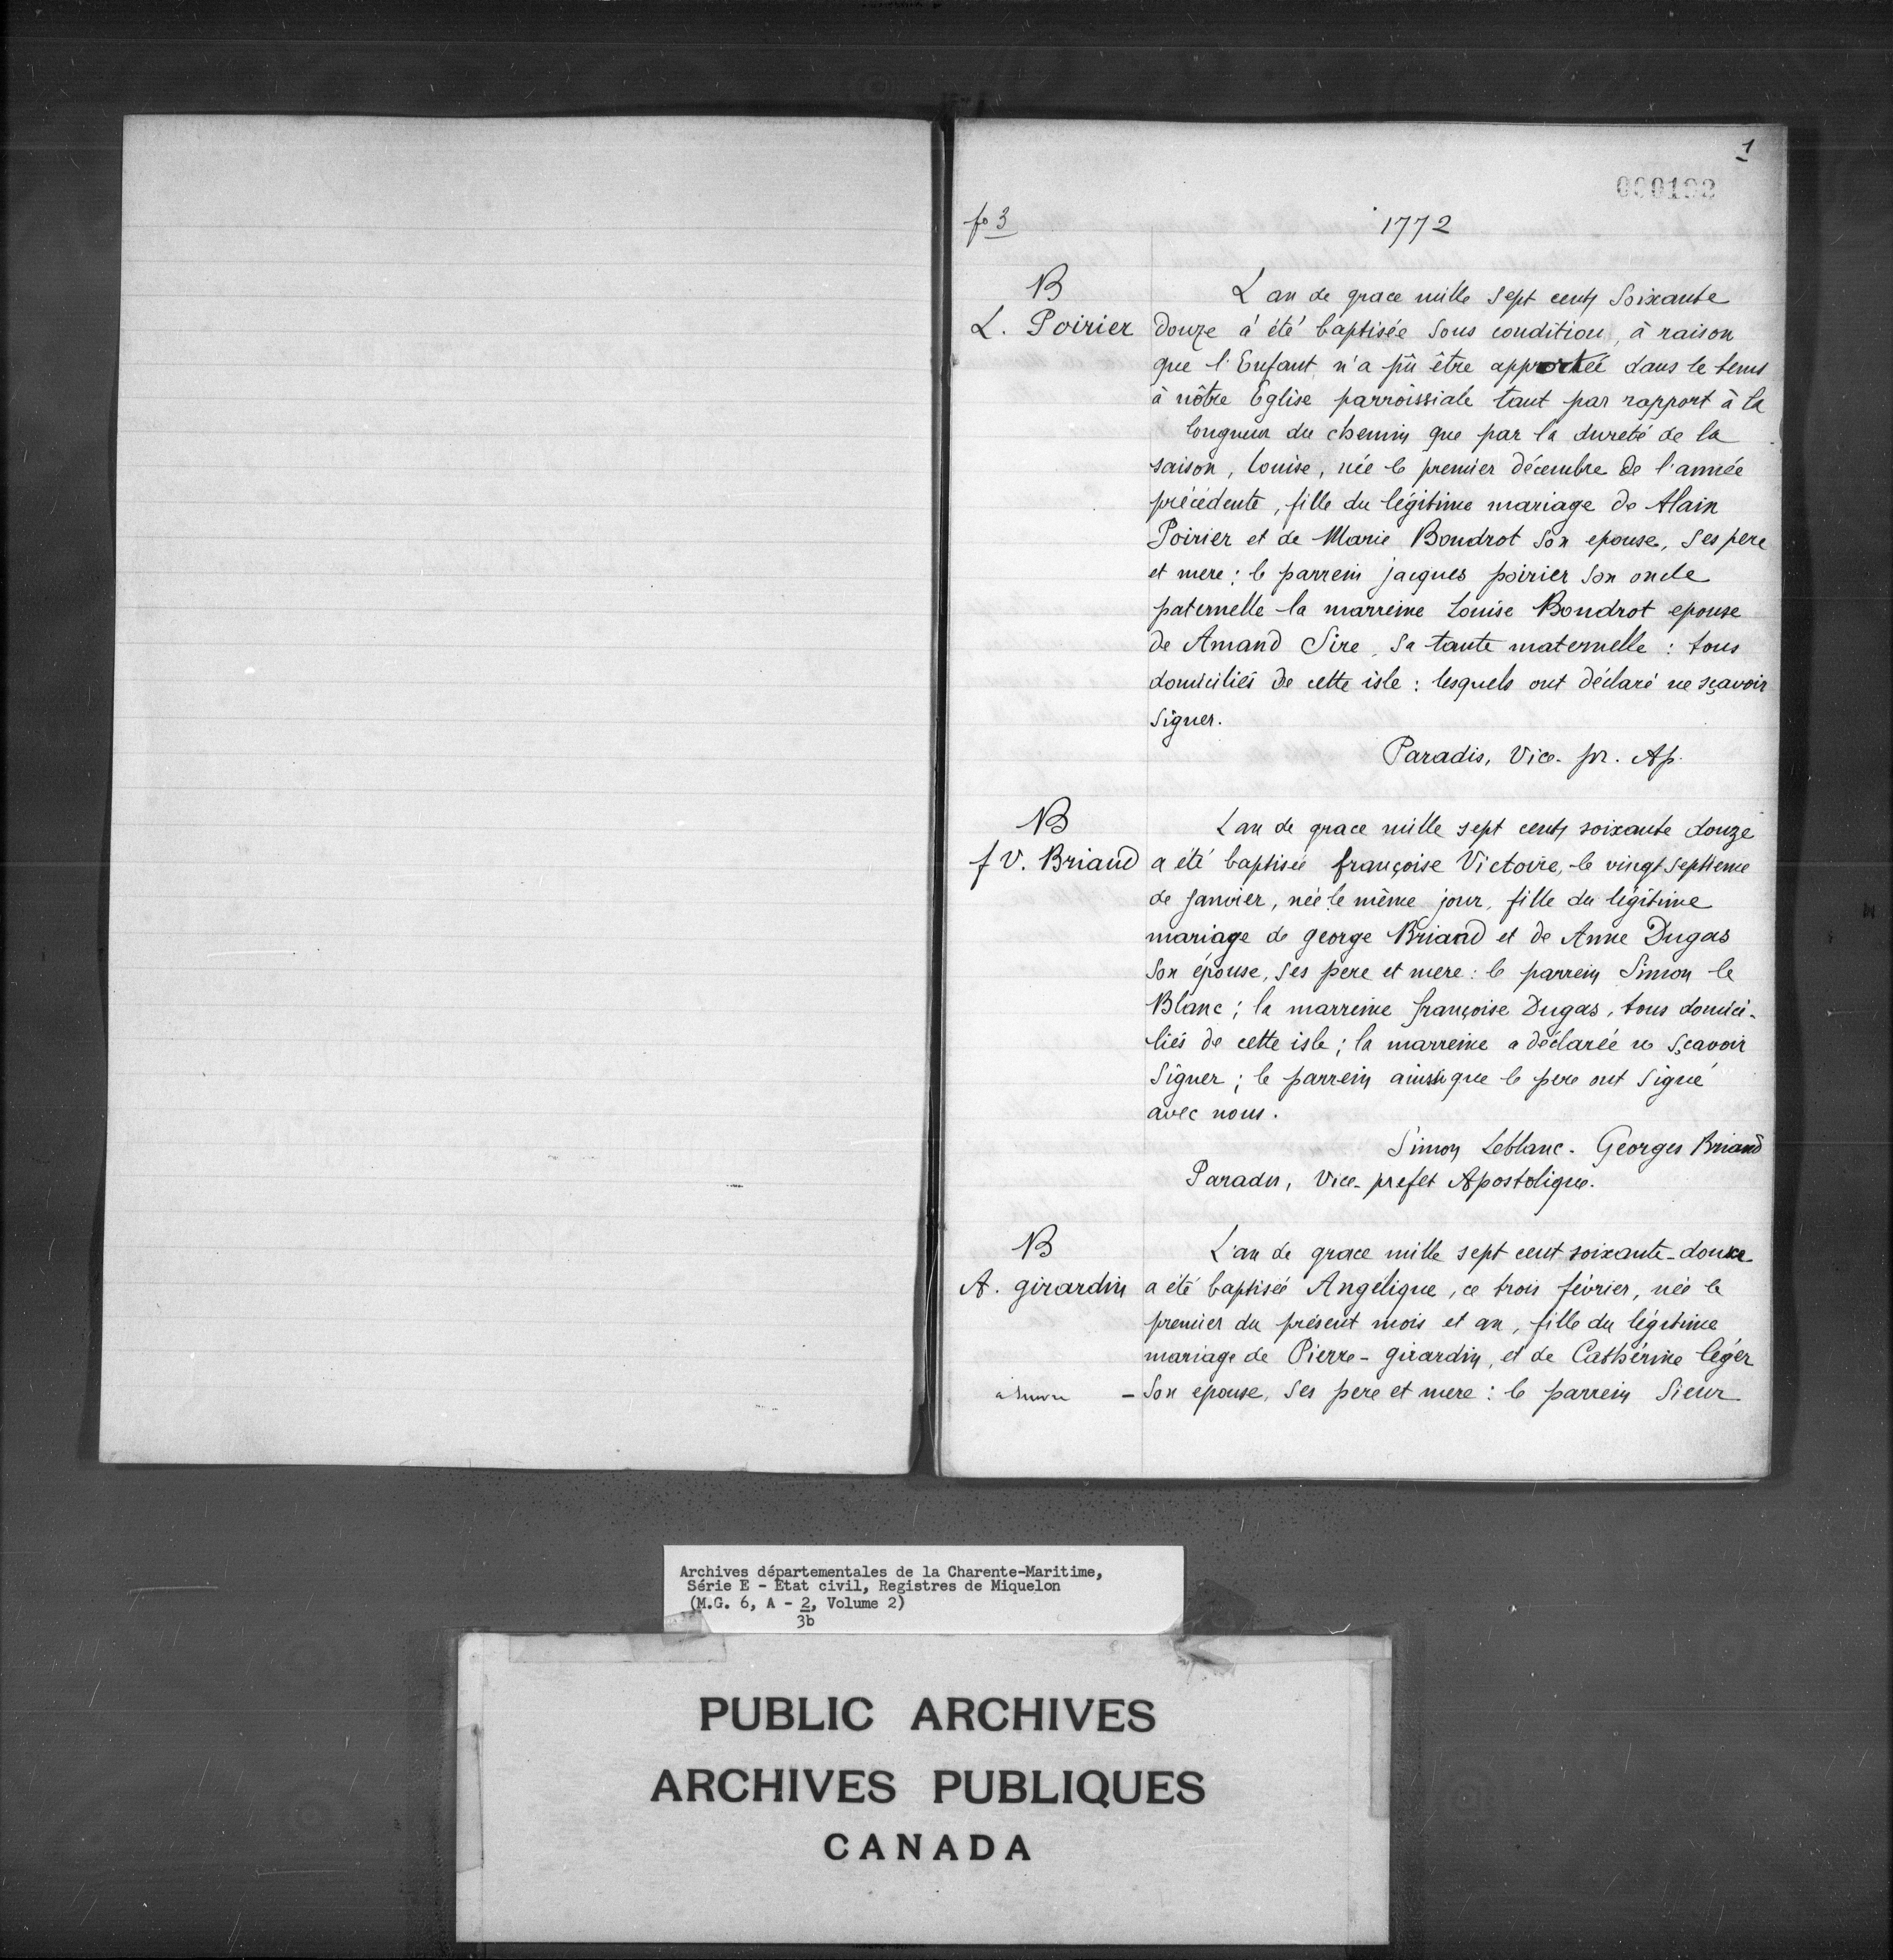 1
000192
fo 3
1772
B
L. Poirier
L'an de grace mille sept cents soixante
douze a été baptisée sous condition, à raison
que l'Enfant n'a pû être apportée dans le tems
à nôtre Eglise parroissiale tant par rapport à la
longueur du chemin que par la dureté de la
saison, louise, née le premier décembre de l'année
précédente, fille du légitime mariage de Alain
Poirier et de Marie Boudrot son epouse, ses pere
et mere; le parrein jacques poirier son oncle
paternelle la marreine Louise Boudrot epouse
de Amand Sire, sa tante maternelle : tous
domiciliés de cette isle : lesquels ont déclaré ne sçavoir
signer.
Paradis, Vice. pr. Ap.
B
f V. Briand
L'an de grace mille sept cents soixante douze
a été baptisée françoise Victoire, le vingt septieme
de janvier, née le même jour, fille du légitime
mariage de george Briand et de Anne Dugas
son épouse, ses pere et mere : le parrein Simon le
Blanc; la marreine françoise Dugas, tous domici-
liés de cette isle; la marreine a déclarée ne sçavoir
signer; le parrein ainsi que le pere ont signé
avec nous.
Simon Leblanc. Georges Briand
Paradis, Vice-prefet Apostolique.
B
A. girardin
L'an de grace mille sept cent soixante-douze
a été baptisée Angélique, ce trois février, née le
premier du présent mois et an, fille du légitime
mariage de Pierre-girardin, et de Cathérine légèr
son epouse, ses pere et mere : le parrein Sieur
à suivre -
Archives départementales de la Charente-Maritime,
Série E - Etat civil, Registres de Miquelon
(M.G. 6, A - 2, Volume 2)
3b
PUBLIC ARCHIVES
ARCHIVES PUBLIQUES
CANADA